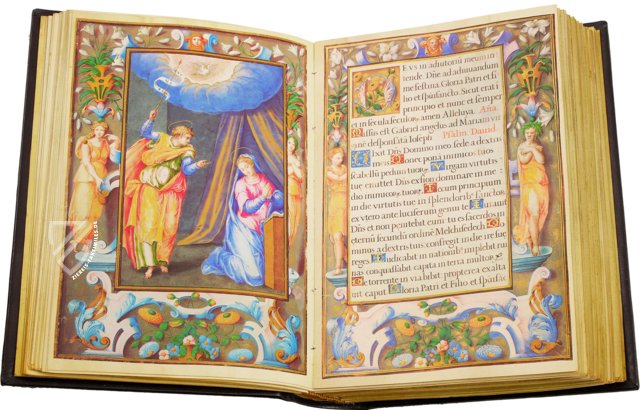 EVS in adiutoriũ meum in
tende. Dñe ad adiuuandum
me festina Gloria Patri et fi
lio et spũi sancto. Sicut erat i
principio et nunc et semper
et in secula seculorũ amen Alleluya. Aña.
Missus est Gabriel angelus ad Mariam vir
gine desponsata Ioseph Psalm. Dauid.
Dixit Dñs Domino meo sede a dextris
meis Donec pona inimicos tuos
scabellũ pedum tuorũ. Virgam virtutis
tue emittet Dñs ex sion dominare in me
dio inimicorũ tuorũ. Tecum principium
in die virtutis tue in splendoribs sanctorũ
ex vtero ante luciferum genui te
Dñs et non penitebit eum tu es sacerdos in
eternũ secundũ ordine Melchisedech.
minus a dextris tuis confregit in die ire sue
reges Iudicabit in nationibs implebit rui
nas conquassabit capita in terra multorũ
De torrente in via bibit propterea exalta
uit caput Gloria Patri et Filio et spũi san
ZIEREIS FAKSIMILES.DE